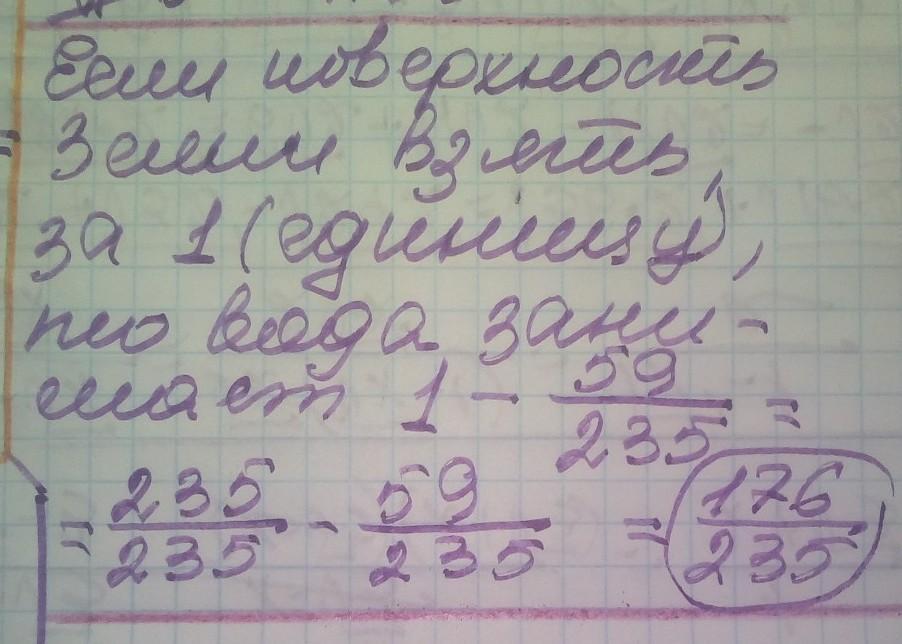 Если поверхность
= Земли взять
за 1 (единицу),
то вода зани-
мает 1 - 59/235 =
= 235/235 - 59/235 = 176/235